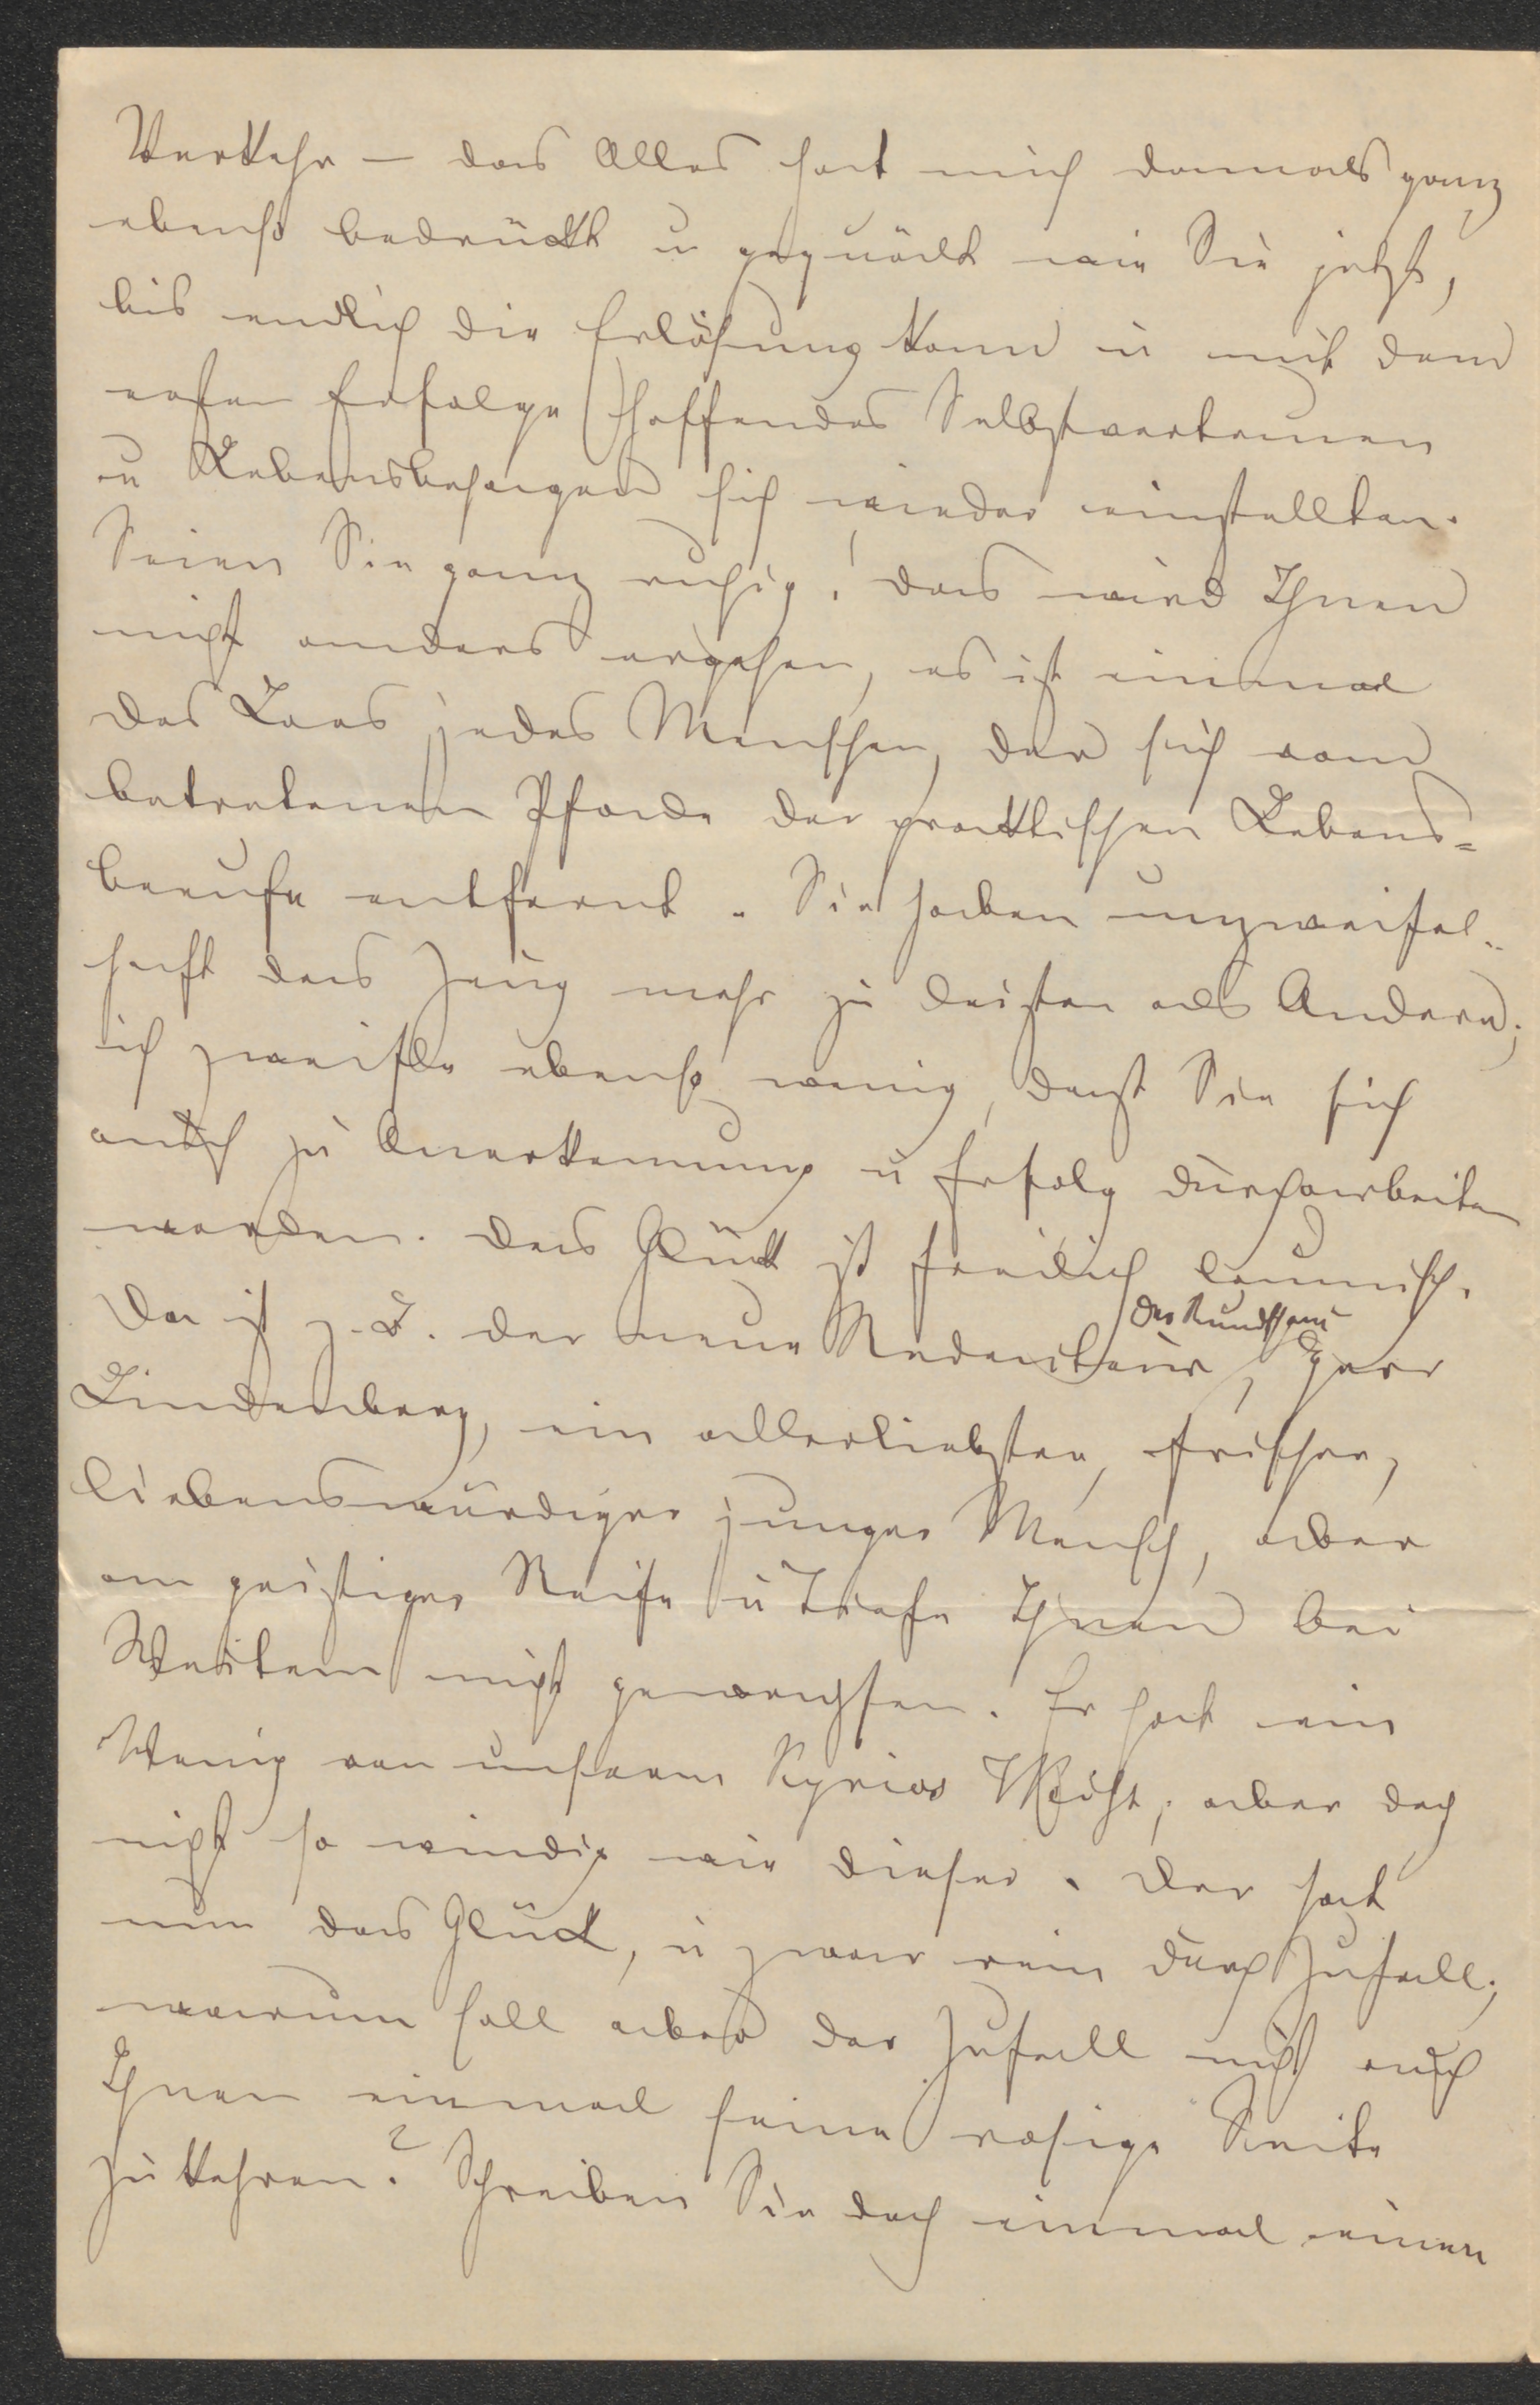 Verkehr — das Alles hat mich damals ganz
ebenso bedrückt u gequält wie Sie jetzt,
bis endlich die Erlösung kam u mit dem
ersten Erfolge Hoffendes Selbstvertrauen
u Lebensbehagen sich wieder einstellten.
Seien Sie ganz ruhig! das wird Ihnen
nicht anders ergehen, es ist einmal
das Loos jedes Menschen, der sich vom
betretenen Pfade der praktischen Lebens=
berufe entfernt. Sie haben unzweifel=
haft das Zeug mehr zu leisten als Andere;
ich zweifle ebenso wenig, daß Sie sich
auch zu Anerkennung u Erfolg durcharbeiten
werden. Das Glück ist freilich launisch.
Da ist z. B. der neue Redakteur der Rundschau, Herr
Lindenberg, ein allerliebster, frischer,
liebenswürdiger junger Mensch, aber
an geistiger Reife u Tiefe Ihnen bei
Weitem nicht gewachsen. Er hat ein
Wenig von unserem Kyrios, aber doch
nicht so windig wie dieser. Der hat
nun das Glück, u zwar rein durch Zufall;
warum soll aber der Zufall nicht auch
Ihnen einmal seine rosige Seite
zukehren? Schreiben Sie doch einmal einen